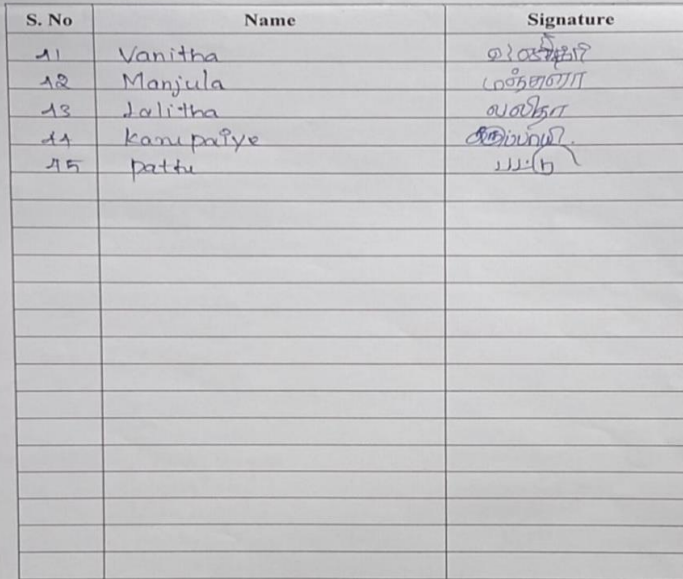 S. No Name Signature
11 Vanitha
12 Manjula மஞ்சுளா
13 Lalitha லலிதா
14 Karupaiye கருப்பாயி.
15 Pattu பட்டு